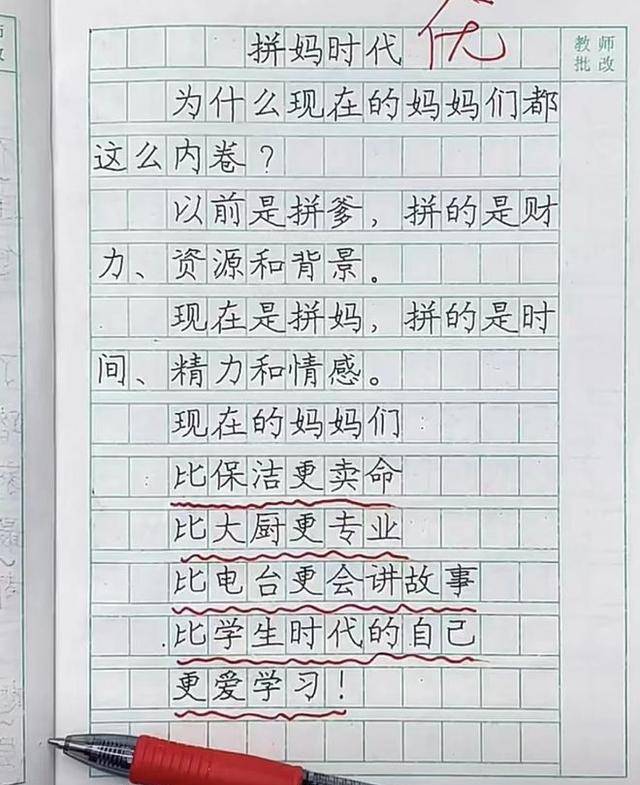 拼妈时代
优
教师
批改
为什么现在的妈妈们都
这么内卷？
以前是拼爹，拼的是财
力、资源和背景。
现在是拼妈，拼的是时
间、精力和情感。
现在的妈妈们
比保洁更卖命
比大厨更专业
比电台更会讲故事
比学生时代的自己
更爱学习！